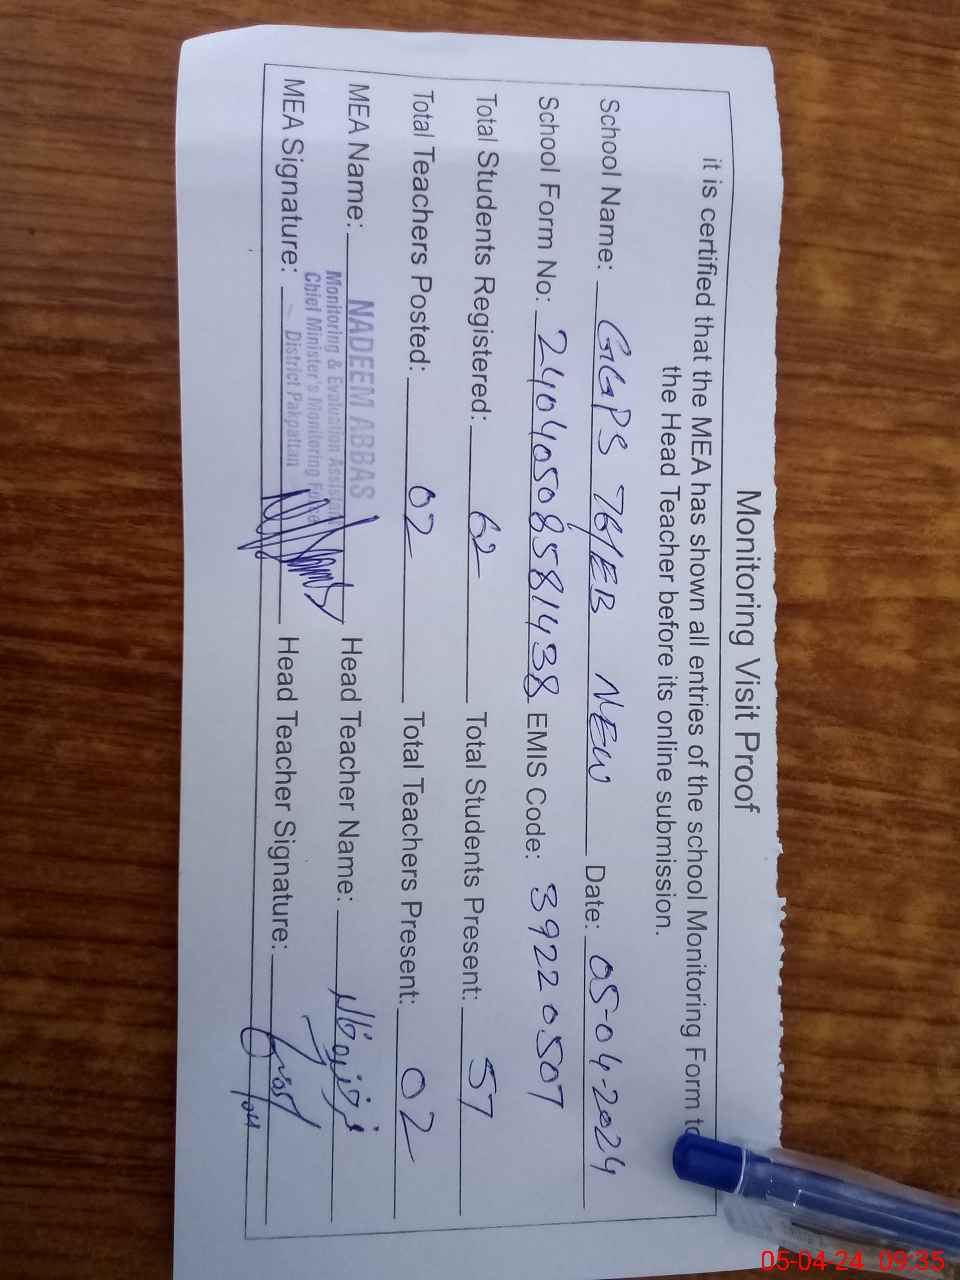 Monitoring Visit Proof
it is certified that the MEA has shown all entries of the school Monitoring Form to
the Head Teacher before its online submission.
School Name: GGPS 76/EB NEW Date: 05-04-2024
School Form No: 24040508581438 EMIS Code: 39220507
Total Students Registered: 62 Total Students Present: 57
Total Teachers Posted: 02 Total Teachers Present: 02
MEA Name: NADEEM ABBAS Head Teacher Name:
Monitoring & Evaluation Assistant
Chief Minister's Monitoring Force
District Pakpattan
MEA Signature: Head Teacher Signature:
05-04-24 09:35